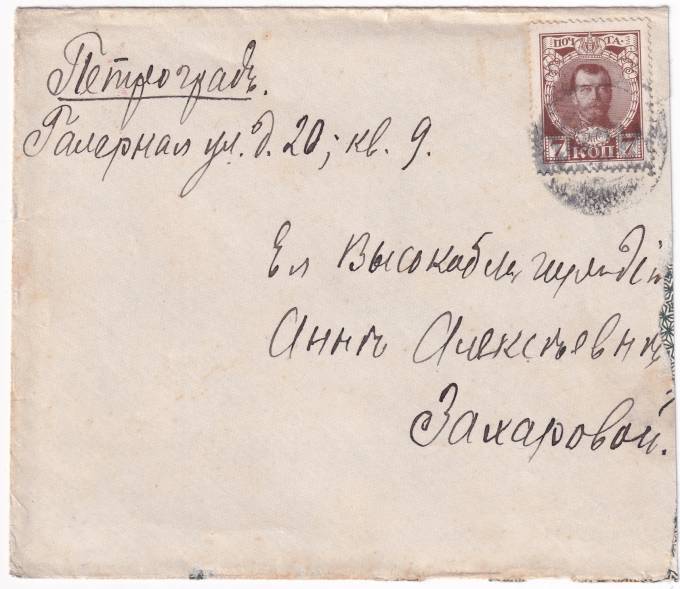 ПОЧТА
7 КОП 7
Петроградъ.
Галерная ул. д. 20; кв. 9.
Ея
Аннѣ Алексѣевнѣ
Захаровой.